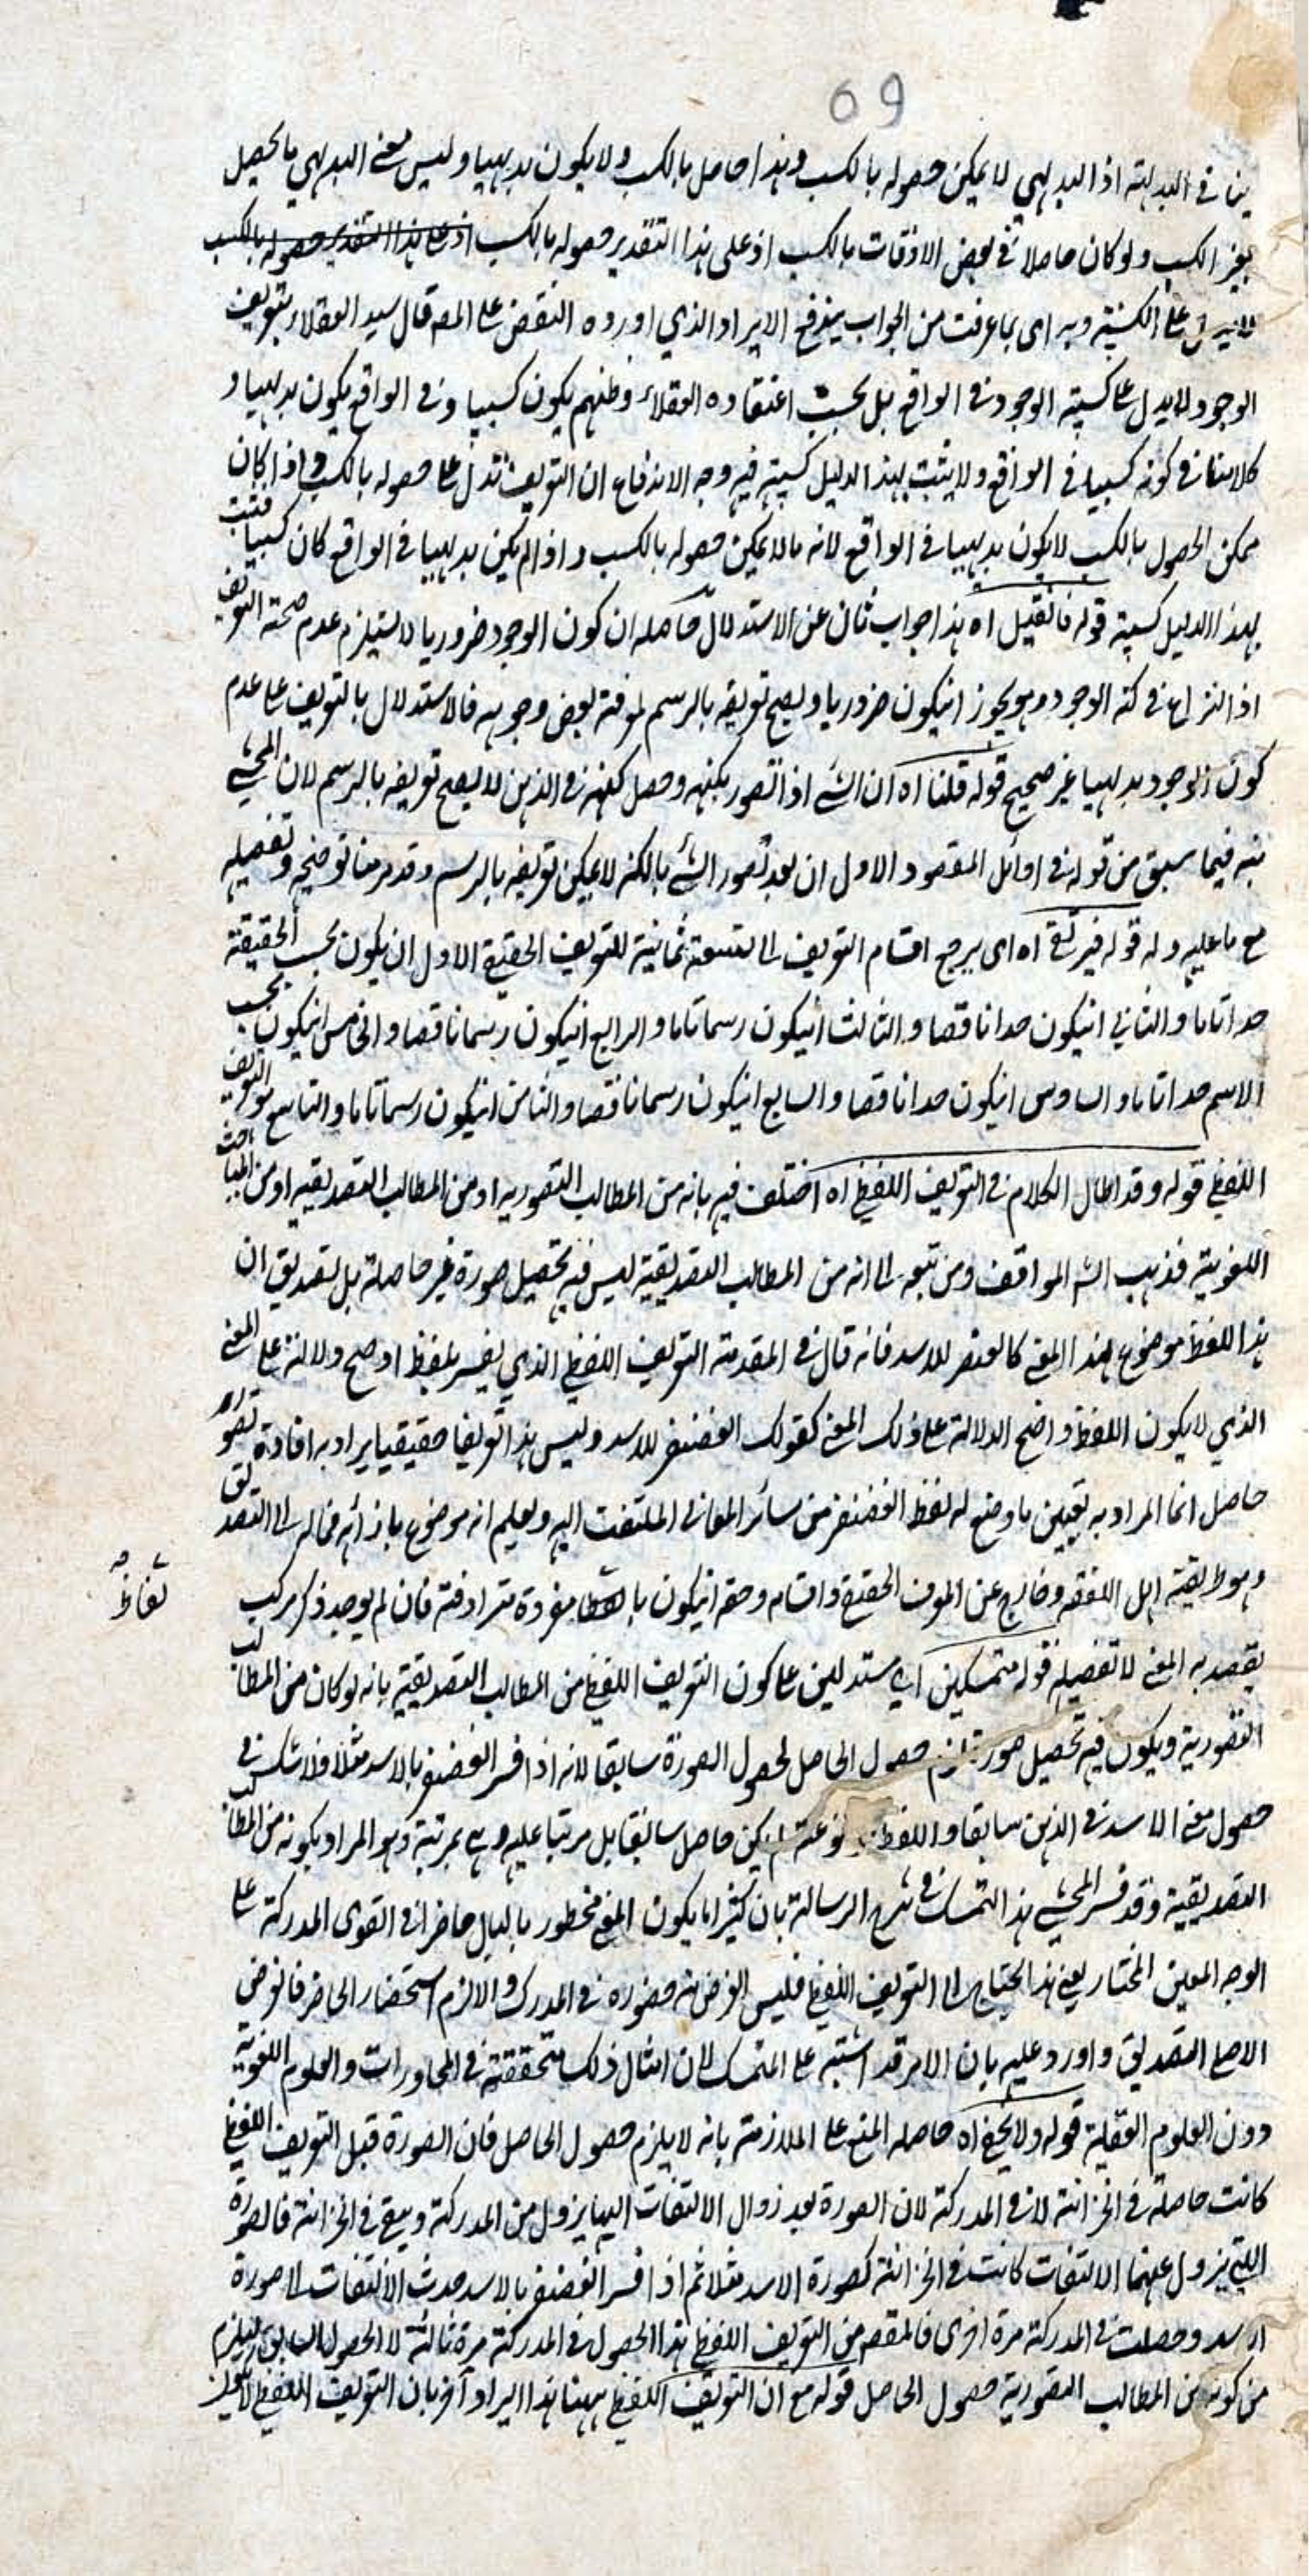 69
ينافي البديهية اذ البديهي لا يمكن حصوله بالكسب وهذا حاصل بالكسب ولا يكون بديهيا وليس معنى البديهي ما يحصل
بغير الكسب ولو كان حاصلا في بعض الاوقات بالكسب اذ على هذا التقدير حصوله بالكسب اذ على هذا التقدير حصوله بالكسب
على الكسبية وبه اى بما عرفت من الجواب يندفع الايراد الذي اورده النقض على المصه قال سيد العقلاء بتعريف
الوجود لا يدل على كسبية الوجود في الواقع بل بحسب اعتقاده العقلاء وظنهم يكون كسبيا وفى الواقع يكون بديهيا و
كلامنا في كونه كسبيا في الواقع ولا يثبت بهذا الدليل كسبية فيه وجه الاندفاع ان التعريف تدل على حصوله بالكسب واذا كان
ممكن الحصول بالكسب لا يكون بديهيا في الواقع لانه ما لا يمكن حصوله بالكسب واذا لم يكن بديهيا في الواقع كان كسبيا فثبت
بهذا الدليل كسبية قوله فانقيل اه هذا جواب ثان عن الاستدلال حاصله ان كون الوجود ضروريا لا يستلزم عدم صحة التعريف
اذ النزاع في كنه الوجود وهو يجوز انيكون ضروريا ويصح تعريفه بالرسم لمعرفة بعض وجوهه فالاستدلال بالتعريف على عدم
كون الوجود بديهيا غير صحيح قوله قلنا اه ان الشئ اذا تصور بكنهه وحصل كنهه في الذهن لا يصح تعريفه بالرسم لان المحشي
نبه فيما سبق من قوله في اوائل المقصود الاول ان بعد تصور الشئ بالكنه لا يمكن تعريفه بالرسم وقد مر منا توضيحه وتفصيله
مع ما عليه وله قوله فيرتقى اه اى يرجع اقسام التعريف الى تسعة ثمانية للتعريف الحقيقي الاول ان يكون بحسب الحقيقة
حدا تاما والثاني انيكون حدا ناقصا والثالث انيكون رسما تاما والرابع انيكون رسما ناقصا والخامس انيكون بحسب
الاسم حدا تاما والسادس انيكون حدا ناقصا والسابع انيكون رسما ناقصا والثامن انيكون رسما تاما والتاسع التعريف
اللفظي قوله وقد اطال الكلام في التعريف اللفظي اه اختلف فيه بانه من المطالب التصوريه او من المطالب التصديقيه او من المباحث
اللغوية فذهب الشه المواقف ومن تبعه الى انه من المطالب التصديقية ليس فيه تحصيل صورة غير حاصلة بل تصديق ان
هذا اللفظ موضوع لهذا المعنى كالغضنفر للاسد فانه قال في المقدمة التعريف اللفظي الذي يفسر بلفظ اوضح دلالة على المعنى
الذي لا يكون اللفظ واضح الدلالة على ذلك المعنى كقولك الغضنفر للاسد وليس هذا تعريفا حقيقيا يراد به افادة تصور
حاصل انما المراد به تعيين ما وضع له لفظ الغضنفر من سائر المعاني الملتفت اليه ويعلم انه موضوع بازائه فماله الى التصديق
وهو طريقة اهل اللغة وخارج عن المعرف الحقيقي واقسامه وحقه انيكون بالفاظ مفردة مترادفة فان لم يوجد ذكر مركب
يقصد به المعنى لا تفصيله قوله متمسكين اي مستدلين على كون التعريف اللفظي من المطالب التصديقية بانه لو كان من المطالب
التصورية ويكون فيه تحصيل صورة لزم حصول الحاصل لحصول الصورة سابقا لانه اذا فسر الغضنفر بالاسد مثلا فلا شك في
حصول معنى الاسد في الذهن سابقا واللفظ لم يكن حاصل سابقا بل مرتبا عليه وهى بمرتبة وهو المراد بكونه من المطالب
التصديقية وقد فسر المحشي هذا التمسك في شرح الرسالة بان كثيرا ما يكون المعنى مخطور بالبال حاضرا في القوى المدركة على
الوجه المعين المختار يعنى هذا يحتاج الى التعريف اللفظي فليس الغرض منه حضوره في المدرك والا لزم استحضار الحاضر فالغرض
الاصلى التصديق واورد عليه بان الامر قد اشتبه على المتمسك لان امثال ذلك متحققة في المحاورات والعلوم اللغوية
دون العلوم العقلية قوله ولا يخفى اه حاصله المنع على الملازمة بانه لا يلزم حصول الحاصل فان الصورة قبل التعريف اللفظي
كانت حاصلة في الخزانة لا في المدركة لان الصورة بعد زوال الالتفات اليها يزول من المدركة ويبقى في الخزانة فالصورة
التي يزول عنها الالتفات كانت في الخزانة كصورة الاسد مثلا ثم اذا فسر الغضنفر بالاسد حدث الالتفات الى صورة
الاسد وحصلت في المدركة مرة اخرى فالمقصه من التعريف اللفظي هذا الحصول في المدركة مرة ثانية لا الحصول السابق فيلزم
من كونه من المطالب التصورية حصول الحاصل قوله مع ان التعريف اللفظي ههنا هذا ايراد آخر بان التعريف اللفظي